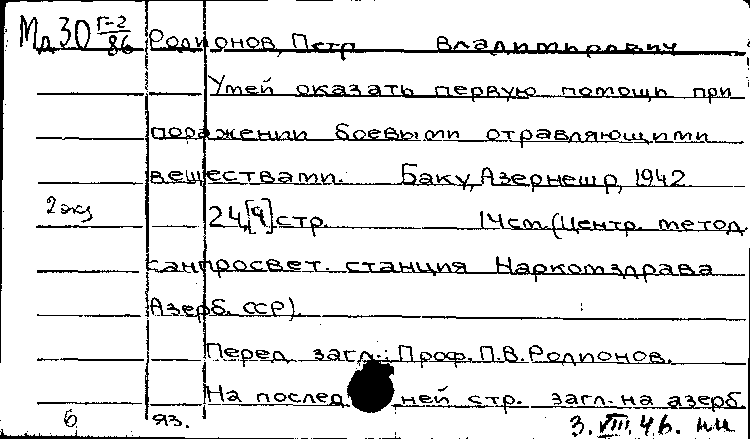 Мд 30 Г-2/86 Родионов, Петр Владимирович
Умей оказать первую помощь при
поражении боевыми отравляющими
веществами. Баку, Азернешр, 1942
2 экз 24,[4] стр. 14 см. (Центр. метод.
санпросвет. станция Наркомздрава
Азерб. ССР).
Перед загл.: Проф. П.В. Родионов.
На последней стр. загл. на азерб.
6 яз.
3.VIII.46. ни